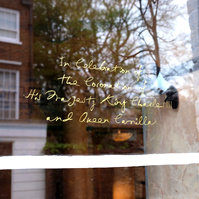 In Celebration of
the Coronation of
His Majesty King Charles III
and Queen Camilla